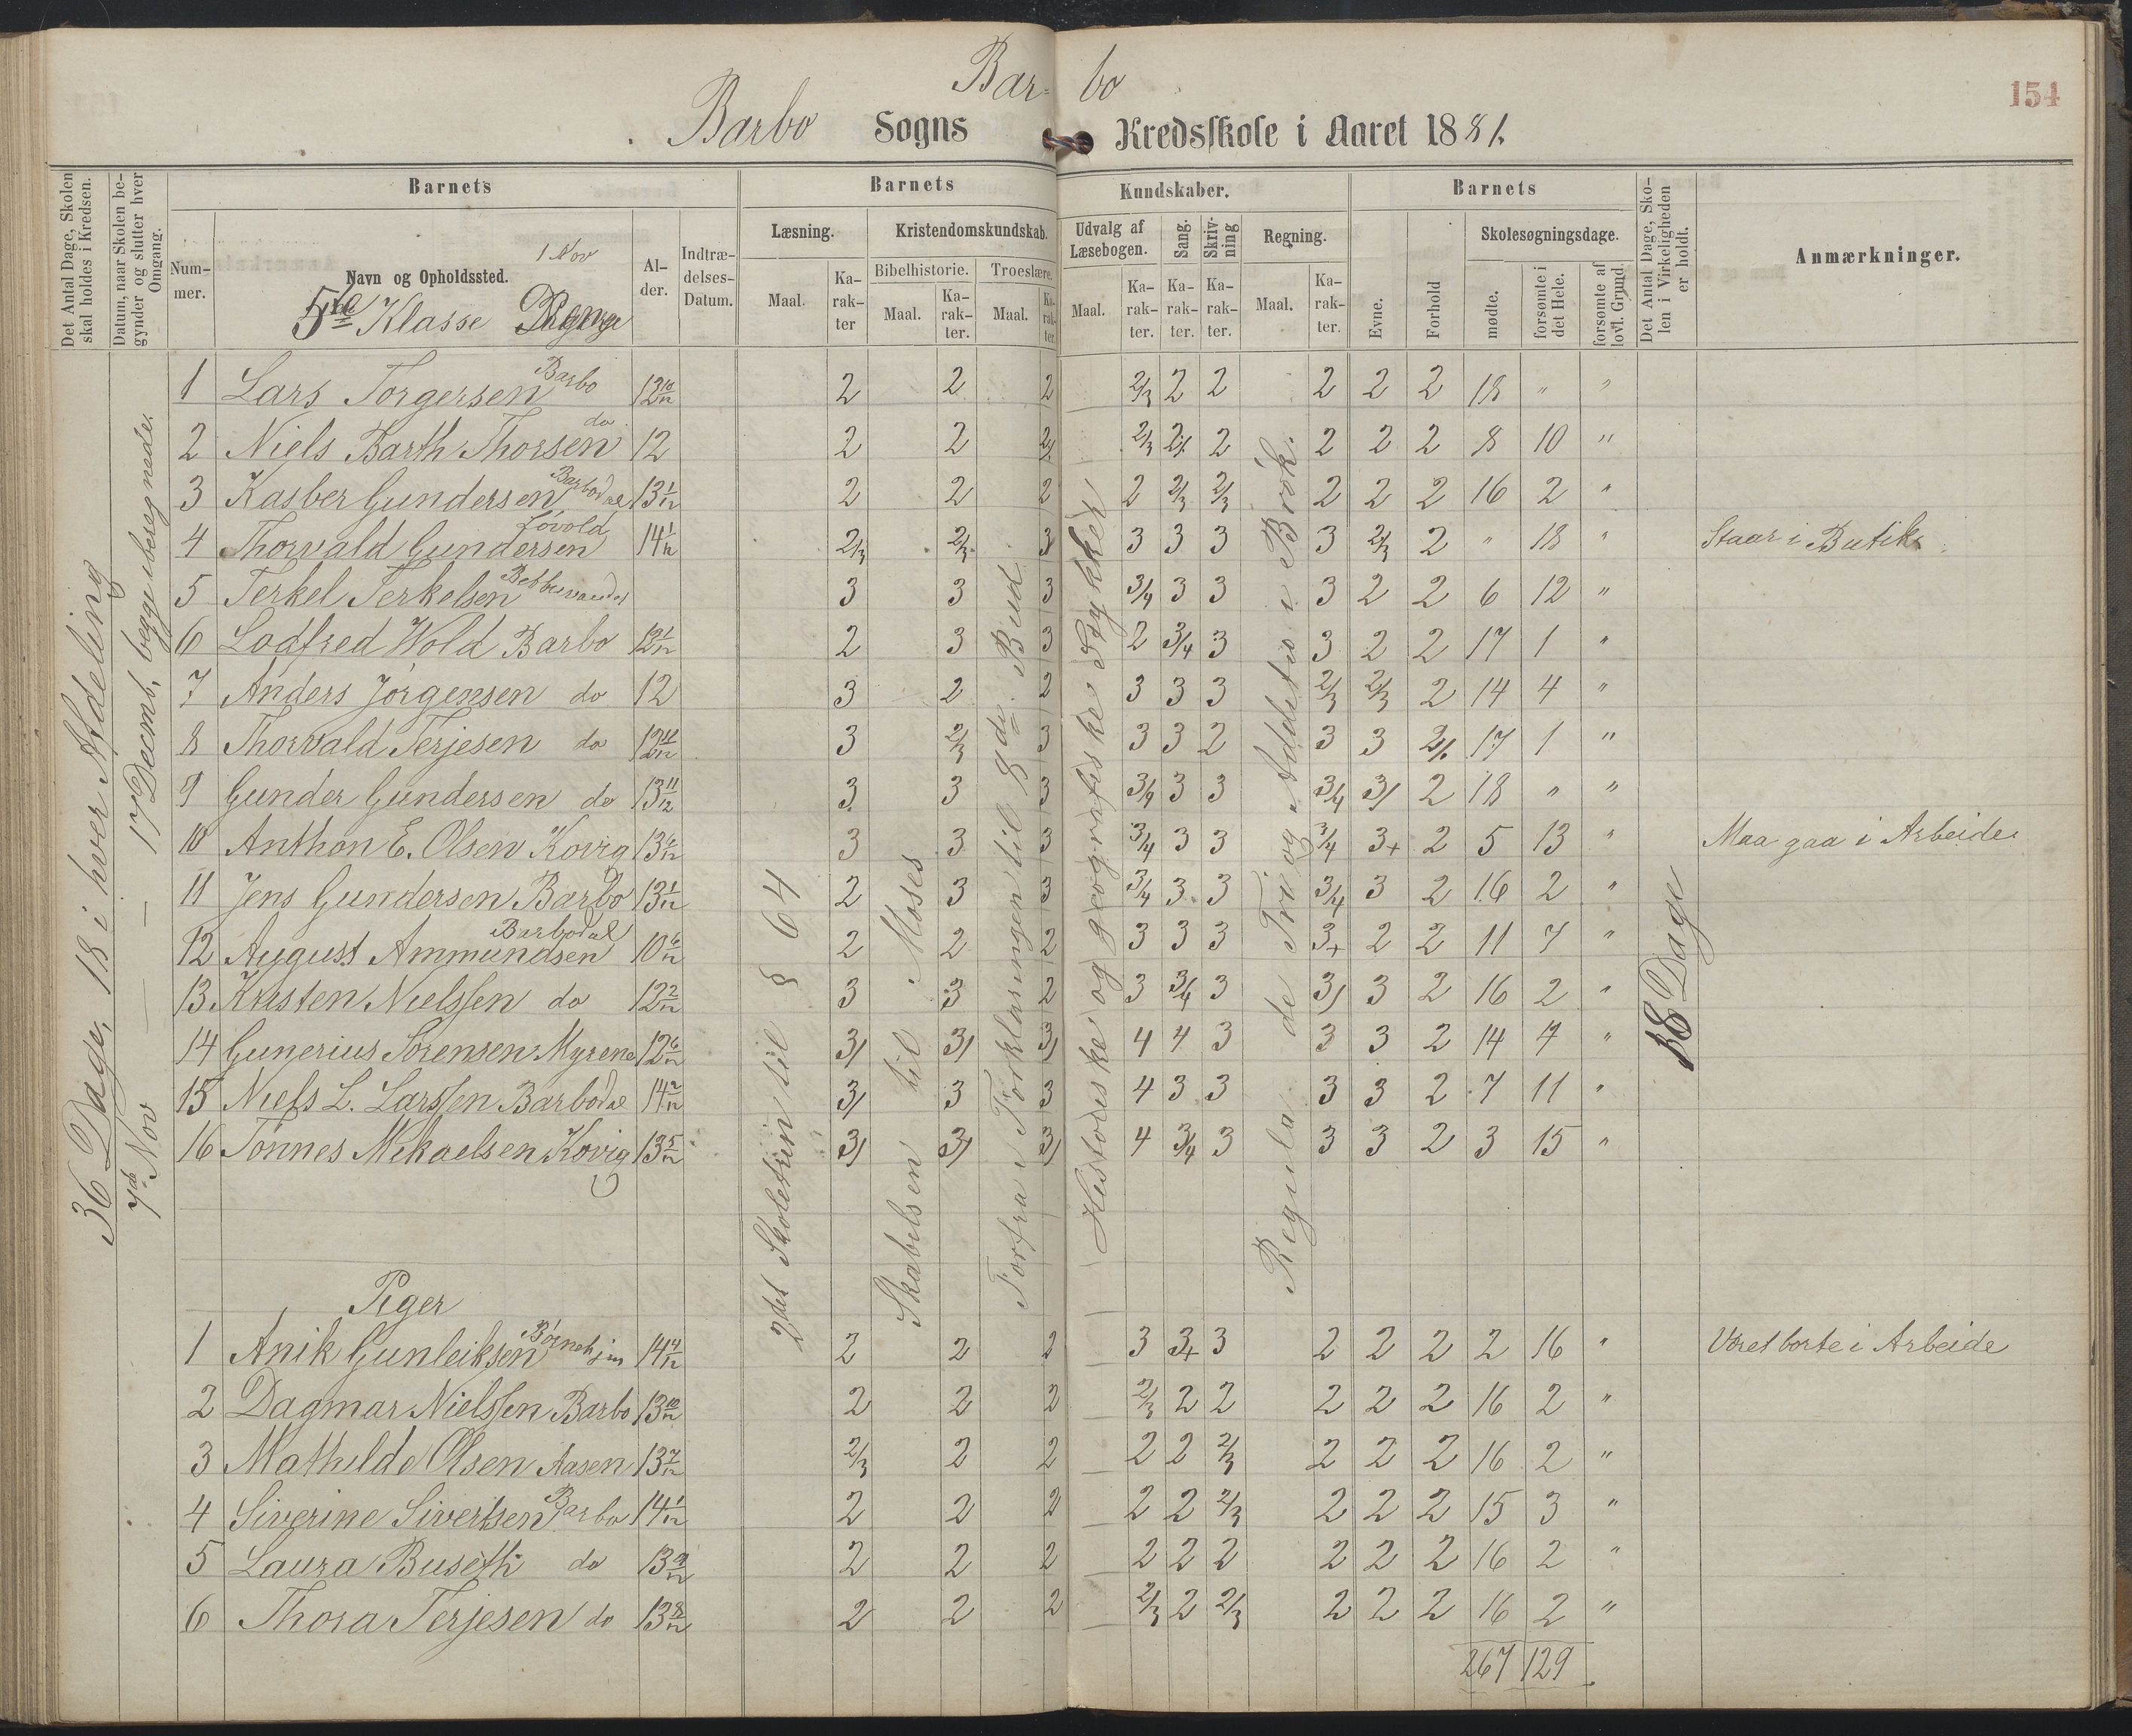 Bar- bo
154
Barbo Sogns Kredsskole i Aaret 1881.
Det Antal Dage, Skolen skal holdes i Kredsen.
Datum, naar Skolen begynder og slutter hver Omgang.
Barnets
Barnets
Kundskaber.
Barnets
Det Antal Dage, Skolen i Virkeligheden er holdt.
Anmærkninger.
Nummer.
Navn og Opholdssted.
1 Nov
5te Klasse
Alder.
Indtrædelses-Datum.
Læsning.
Kristendomskundskab.
Bibelhistorie.
Troeslære.
Udvalg af Læsebogen.
Sang.
Skrivning
Regning.
Skolesøgningsdage.
Maal.
Karakter
Maal.
Karakter.
Maal.
Karakter.
Maal.
Karakter.
Karakter.
Karakter.
Maal.
Karakter.
Evne.
Forhold
mødte.
forsømte i det Hele.
forsømte af lovl. Grund.
36 Dage, 18 i hver Afdeling
7de Nov — 17 Decemb, begge iberegnede.
2det Skoletrin til § 64
Skabelsen til Moses
Forfra i Forklaringen til 8de Bud
Historiske og geografiske Stykker
Regula de Tri og Addition i Brøk.
18 Dage
1 Lars Torgersen Barbo 13 10/12 2 2 2 2/3 2 2 2 2 2 18 " "
2 Niels Barth Thorsen do 12 2 2 2/ 2/3 2/ 2 2 2 2 8 10 "
3 Kasber Gundersen Barbodal 13 1/12 2 2 2 2 2/3 2/3 2 2 2 16 2 "
4 Thorvald Gundersen Løvold 14 1/12 2/3 2/3 3 3 3 3 3 2/3 2 " 18 " Staar i Butik
5 Terkel Terkelsen 3 3 3 3/4 3 3 3 2 2 6 12 "
6 Lodfred Wold Barbo 12 1/12 2 3 3 2 3/4 3 3 2 2 17 1 "
7 Anders Jörgensen do 12 3 2 2 3 3 3 2/3 2/3 2 14 4 "
8 Thorvald Terjesen do 12 11/12 3 2/3 3 3 3 2 3 3 2/ 17 1 "
9 Gunder Gundersen do 13 11/12 3 3 3 3/4 3 3 3/4 3/ 2 18 " "
10 Anthon E. Olsen Kovig 13 6/12 3 3 3 3/4 3 3 3/4 3+ 2 5 13 " Maa gaa i Arbeide
11 Jens Gundersen Barbo 13 1/12 2 3 3 3/4 3 3 3/4 3 2 16 2 "
12 August Ammundsen Barbodal 10 6/12 2 2 2 3 3 3 3+ 2 2 11 7 "
13 Kristen Nielssen do 12 2/12 3 3 2 3 3/4 3 3/ 3 2 16 2 "
14 Gunerius Sørensen Myrene 12 6/12 3/ 3/ 3/ 4 4 3 3 3 2 14 4 "
15 Niels L. Larssen Barbodal 14 2/12 3/ 3 3 4 3 3 3 3 2 7 11 "
16 Tønnes Mikaelsen Kovig 13 5/12 3/ 3/ 3/ 4 3/4 3 3 3 2 3 15 "
Piger
1 Anik Gunleiksen 14 4/12 2 2 2 3 3+ 3 2 2 2 2 16 " Været borte i Arbeide
2 Dagmar Nielssen Barbo 13 10/12 2 2 2 2/3 2 2 2 2 2 16 2 "
3 Mathilde Olsen Aasen 13 7/12 2/3 2 2 2 2 2/3 2 2 2 16 2 "
4 Siverine Sivertsen Barbo 14 1/12 2 2 2 2 2 2/3 2 2 2 15 3 "
5 Laura Buseth do 13 9/12 2 2 2 2 2 2 2 2 2 16 2 "
6 Thora Terjesen do 13 8/12 2 2 2 2/3 2 2/3 2 2 2 16 2 "
267 129